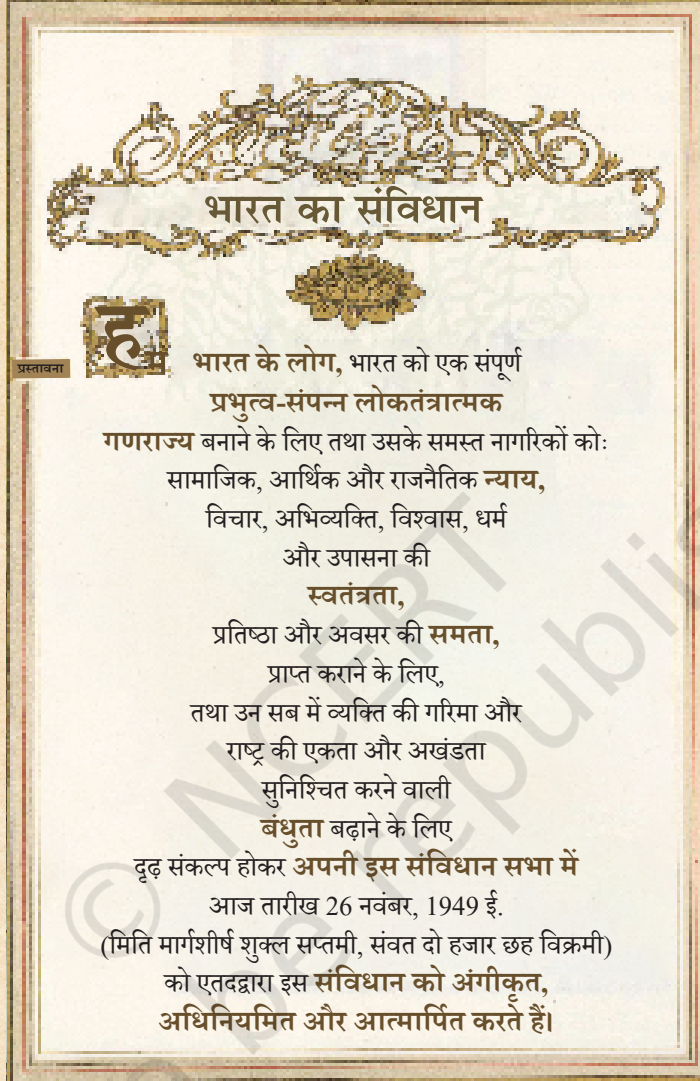 भारत का संविधान
प्रस्तावना
हम भारत के लोग, भारत को एक संपूर्ण
प्रभुत्व-संपन्न लोकतंत्रात्मक
गणराज्य बनाने के लिए तथा उसके समस्त नागरिकों कोः
सामाजिक, आर्थिक और राजनैतिक न्याय,
विचार, अभिव्यक्ति, विश्वास, धर्म
और उपासना की
स्वतंत्रता,
प्रतिष्ठा और अवसर की समता,
प्राप्त कराने के लिए,
तथा उन सब में व्यक्ति की गरिमा और
राष्ट्र की एकता और अखंडता
सुनिश्चित करने वाली
बंधुता बढ़ाने के लिए
दृढ़ संकल्प होकर अपनी इस संविधान सभा में
आज तारीख 26 नवंबर, 1949 ई.
(मिति मार्गशीर्ष शुक्ल सप्तमी, संवत दो हजार छह विक्रमी)
को एतदद्वारा इस संविधान को अंगीकृत,
अधिनियमित और आत्मार्पित करते हैं।
© NCERT
be republis